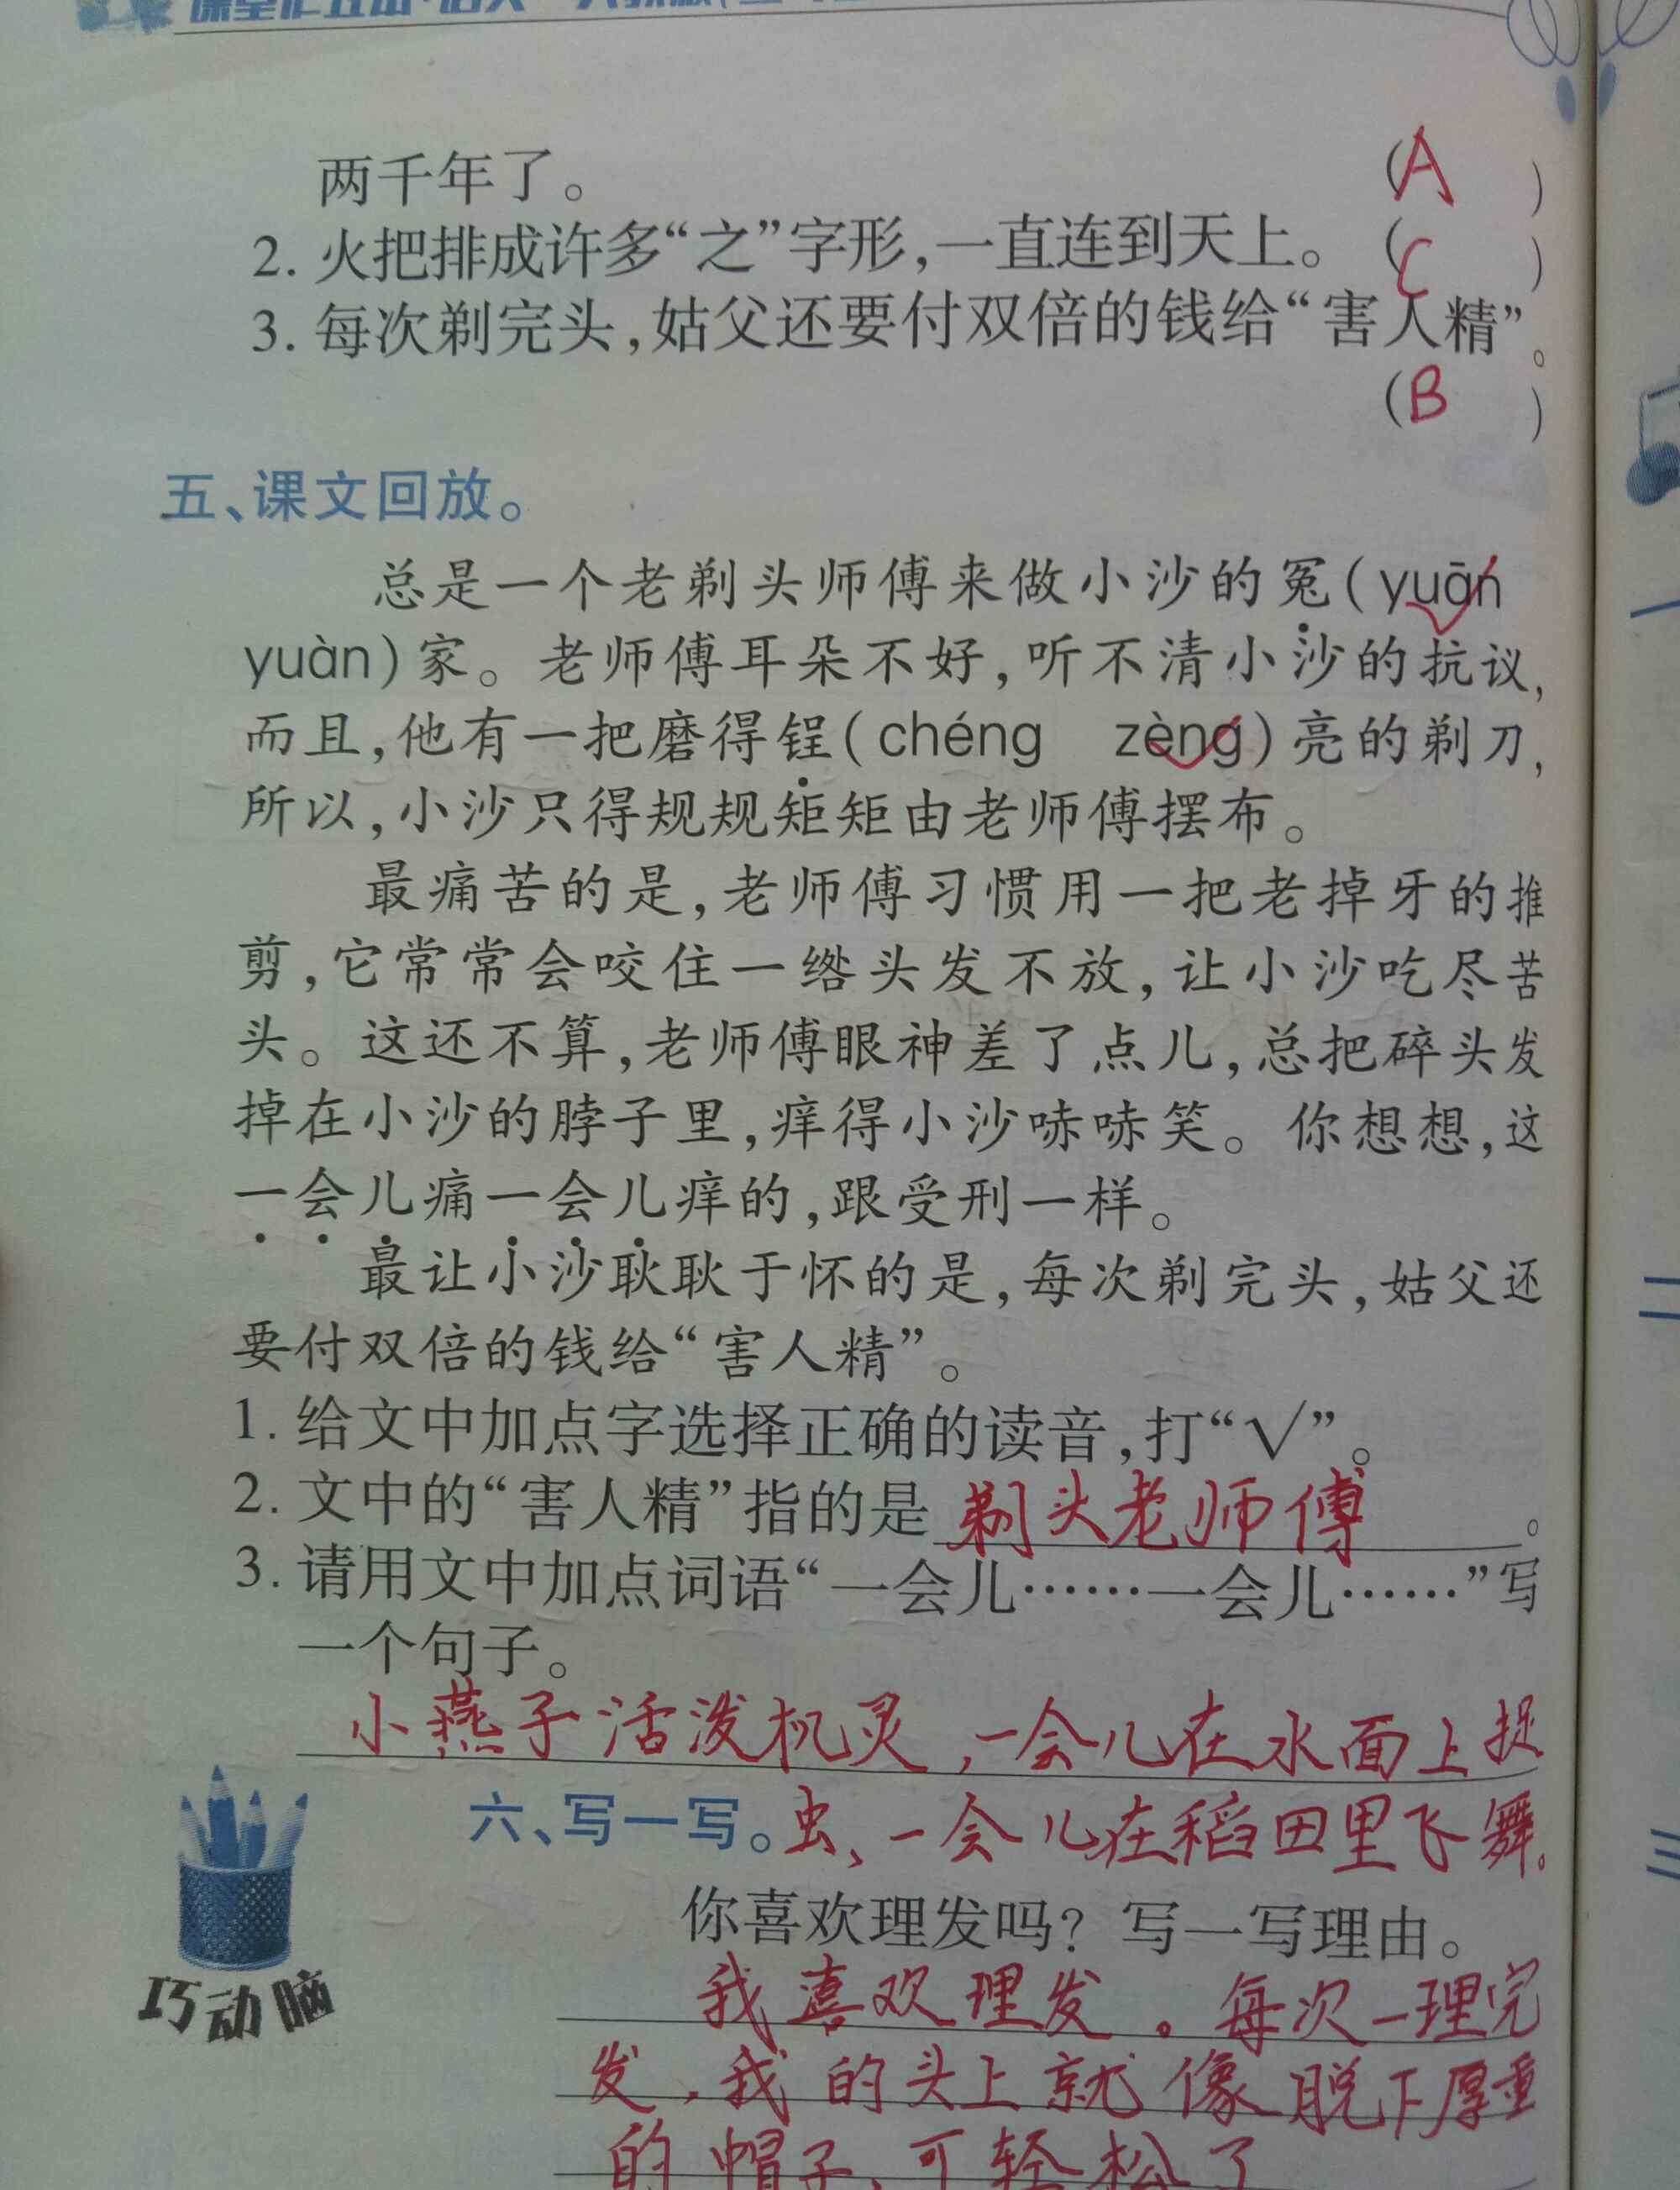 两千年了。 (A)
2. 火把排成许多“之”字形,一直连到天上。 (C)
3. 每次剃完头,姑父还要付双倍的钱给“害人精”。
(B)
五、课文回放。
总是一个老剃头师傅来做小沙的冤(yuān
yuàn)家。老师傅耳朵不好,听不清小沙的抗议,
而且,他有一把磨得锃(chéng zèng)亮的剃刀,
所以,小沙只得规规矩矩由老师傅摆布。
最痛苦的是,老师傅习惯用一把老掉牙的推
剪,它常常会咬住一绺头发不放,让小沙吃尽苦
头。这还不算,老师傅眼神差了点儿,总把碎头发
掉在小沙的脖子里,痒得小沙哧哧笑。你想想,这
一会儿痛一会儿痒的,跟受刑一样。
最让小沙耿耿于怀的是,每次剃完头,姑父还
要付双倍的钱给“害人精”。
1. 给文中加点字选择正确的读音,打“√”。
2. 文中的“害人精”指的是剃头老师傅。
3. 请用文中加点词语“一会儿……一会儿……”写
一个句子。
小燕子活泼机灵,一会儿在水面上捉
六、写一写。虫、一会儿在稻田里飞舞。
你喜欢理发吗?写一写理由。
我喜欢理发。每次一理完
发,我的头上就像脱下厚重
的帽子,可轻松了
巧动脑